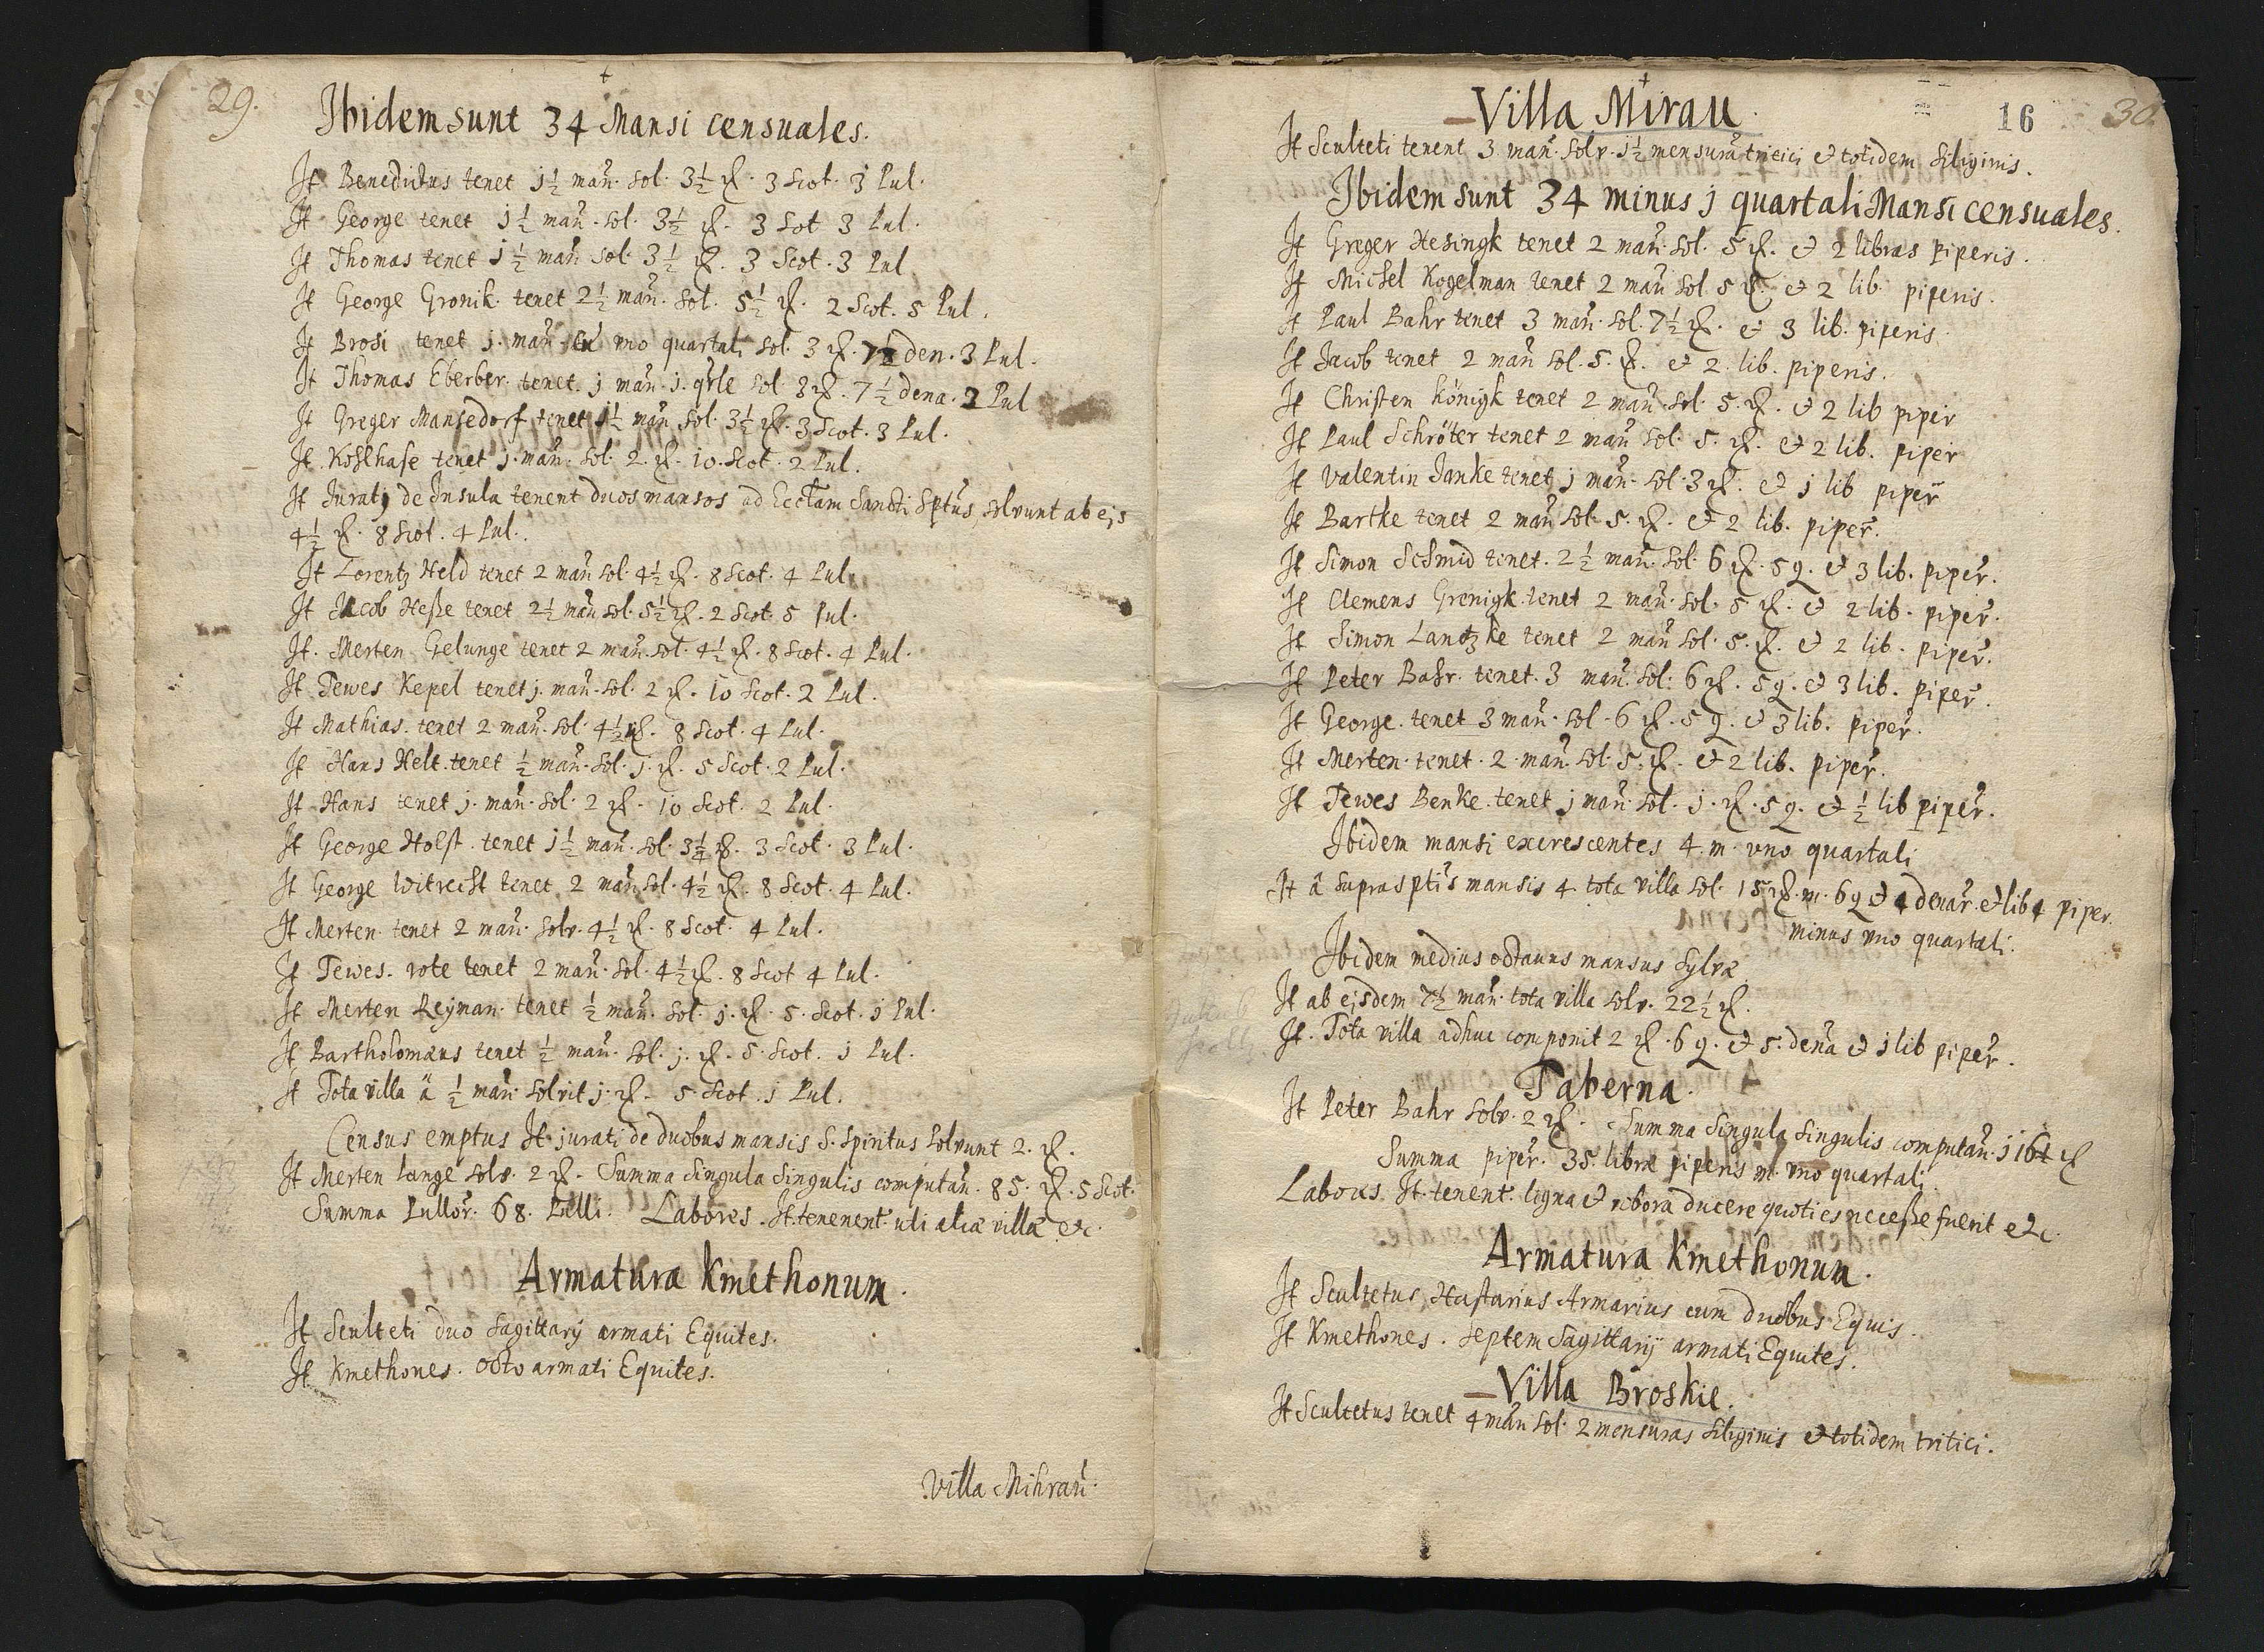 29.
Ibidem sunt 34 Mansi censuales.
It Benedictus tenet j½ mañ. sol. 3½ ℳ. 3 Scot. 3 Pul.
It George tenet j½ mañ. sol. 3½ ℳ. 3 Sot 3 Pul.
It Thomas tenet j½ mañ sol. 3½ ℳ. 3 Scot. 3 Pul
It George Gronik. tenet 2½ mañ. sol. 5½ ℳ. 2 Scot. 5 Pul.
It Brosi tenet j. mañ. cũ vno quartali sol. 3 ℳ. den. 3 Pul.
It Thomas Eberber. tenet. j mañ. j. qrle sol. 3 ℳ. 7½ dena. 2 Pul
It Greger Mansedorf tenet j½ mañ sol. 3½ ℳ. 3 Scot. 3 Pul.
It Kohlhase tenet j. mañ. sol. 2 ℳ. 10. Scot. 2 Pul.
It Juratj de Insula tenent duos mansos ad Ecclam Sancti Sptus, solvunt ab ejs
4½ ℳ. 8 Scot. 4 Pul.
It Lorentz Held tenet 2 mañ sol. 4½ ℳ. 8 Scot. 4 Pul.
It Jacob Heße tenet 2½ mañ sol. 5½ ℳ. 2 Scot 5 Pul.
It. Merten Gelunge tenet 2 mañ. sol. 4½ ℳ. 8 Scot. 4 Pul.
It Tewes Kepel tenet j. mañ. sol. 2 ℳ. 10 Scot. 2 Pul.
It Mathias. tenet 2 mañ. sol. 4½ ℳ. 8 Scot. 4 Pul.
It Hans Helt. tenet ½ mañ. sol. j. ℳ. 5 Scot. 2 Pul.
It Hans tenet j. mañ. sol. 2 ℳ. 10 Scot. 2 Pul.
It George Holst. tenet j½ mañ. sol. ℳ. 3 Scot. 3 Pul.
It George Witrecht tenet 2 mañ sol. 4½ ℳ. 8 Scot. 4 Pul.
It Merten tenet 2 mañ. solv. 4½ ℳ. 8 Scot. 4 Pul.
It Tewes. rote tenet 2 mañ. sol. 4½ ℳ. 8 Scot 4 Pul.
It Merten Reyman. tenet ½ mañ. sol. j. ℳ. 5. Scot. j Pul.
It Bartholomæus tenet ½ mañ. sol. j. ℳ. 5. Scot. j Pul.
It Tota villa á ½ mañ. solvit j. ℳ. 5 Scot. j Pul.
Census emptus It jurati de duobus mansis S. Spiritus solvunt 2. ℳ.
It Merten lange solv. 2 ℳ. Summa singula singulis computañ. 85. ℳ. 5 Scot.
Summa Pullor. 68. Pulli. Labores. It. tenenent uti aliæ villæ etc.
Armatura Kmethonum.
It Sculteti duo sagittarij armati Equites.
It Kmethones. octo armati Equites.
Villa Mihrau.
16
30.
Villa Mirau.
It Sculteti tenent 3 mañ. solv. j½ mensurã tritici et totidem siliginis.
Ibidem sunt 34 minus j quartali Mansi censuales.
It Greger Hesingk tenet 2 mañ. sol. 5 ℳ. et 2 libras piperis.
It Michel Kogelman tenet 2 mañ sol. 5 ℳ et 2 lib. piperis.
It Paul Bahr tenet 3 mañ. sol. 7½ ℳ. et 3 lib. piperis.
It Jacob tenet 2 mañ sol. 5. ℳ. et 2. lib. piperis.
It Christen Königk tenet 2 mañ. sol. 5. ℳ. et 2 lib piper
It Paul Schröter tenet 2 mañ sol. 5. ℳ. et 2 lib. piper
It Valentin Janke tenet j mañ. sol. 3 ℳ. et j lib piper
It Bartke tenet 2 mañ sol. 5. ℳ. et 2 lib. piper.
It Simon Schmid tenet. 2½ mañ. sol. 6 ℳ. 5 q. et 3 lib. piper.
It Clemens Grenigk. tenet 2 mañ. sol. 5 ℳ. et 2 lib. piper.
It Simon Lantzke tenet 2 mañ sol. 5. ℳ. et 2 lib. piper.
It Peter Bahr. tenet. 3 mañ. sol. 6 ℳ. 5 q. et 3 lib. piper.
It George. tenet 3 mañ. sol. 6 ℳ. 5 q. et 3 lib. piper.
It Merten. tenet. 2. mañ. sol. 5. ℳ. et 2 lib. piper.
It Tewes Benke. tenet j mañ. sol. j. ℳ. 5 q. et ½ lib piper.
Ibidem mansi excrescentes 4. m. vno quartali
It á suprasptis mansis 4. tota villa sol. 15 ℳ. m. 6 q et 4 denar. et lib 4 piper.
minus vno quartali.
Ibidem medius octauus mansus sylvæ
It ab ejsdem 7½ mañ. tota villa solv. 22½ ℳ.
It. Tota villa adhuc componit 2 ℳ. 6 q. et 5. dena et j lib piper.
Taberna.
It Peter Bahr solv. 2 ℳ. Summa singula singulis computañ. ℳ
Summa piper. 35. libræ piperis m. vno quartali.
Labores. It. tenent. ligna et robora ducere quoties neceße fuerit etc.
Armatura Kmethonum.
It Scultetus, Hastarius Armarius cum duobus Equis.
It Kmethones. septem sagittarij armati Equites.
Villa Broskie.
It Scultetus tenet 4 mañ sol. 2 mensuras siliginis et totidem tritici.